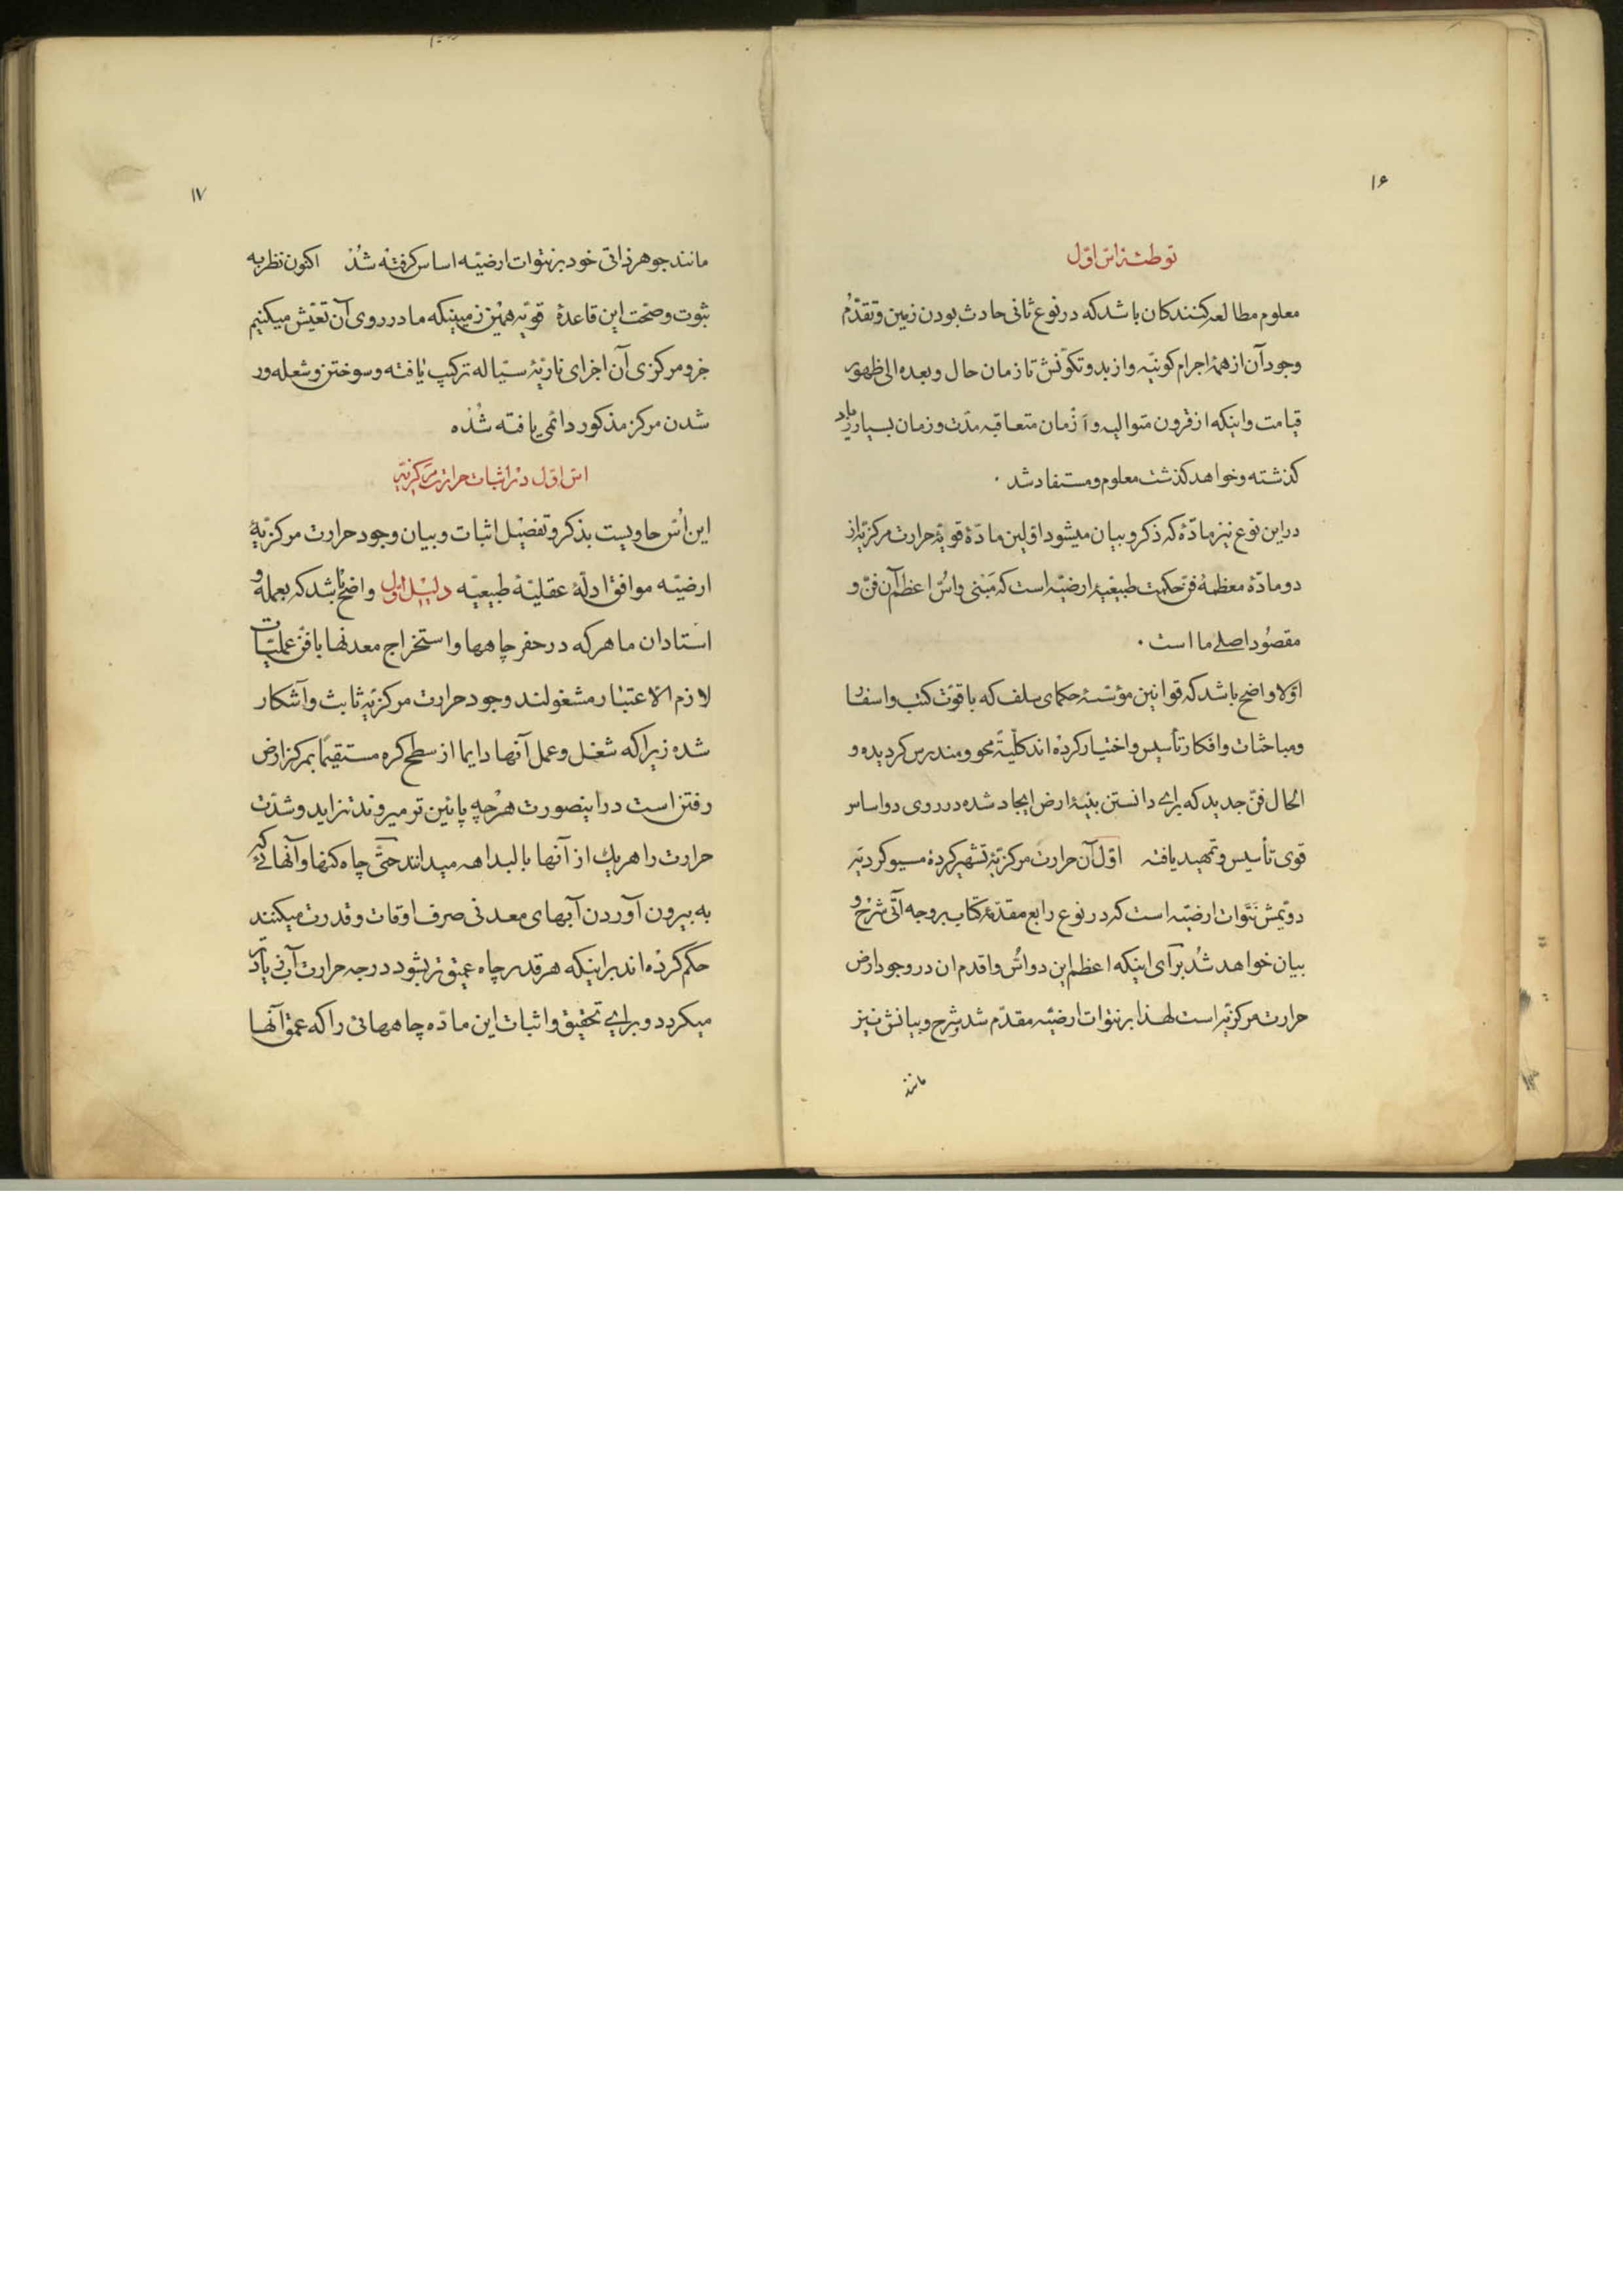 ۱۶
توطئهٔ اسّ اوّل
معلوم مطالعه کنندکان باشد که در نوع ثانی حادث بودن زمین و تقدّم
وجود آن از همهٔ اجرام کونیّه و از بدو تکوّنش تا زمان حال و بعده الی ظهور
قیامت و اینکه از قرون متوالیه و ازمان متعاقبه مدّت و زمان بسیار زیاد
کذشته و خواهد کذشت معلوم و مستفاد شد ۰
در این نوع نیز مادّهٔ که ذکر و بیان میشود اوّلین مادّهٔ قویّهٔ حرارت مرکزیّه از
دو مادّهٔ معظمهٔ فن حکمت طبیعیّهٔ ارضیّه است که مبنی و اسّ اعظم آن فنّ و
مقصود اصلی ما است ۰
اوّلا واضح باشد که قوانین مؤسّسهٔ حکمای سلف که با قوّت کتب و اسفار
و مباحثات و افکار تأسیس و اختیار کرده اند کلّیةً محو و مندرس کردیده و
الحال فنّ جدید که برای دانستن بنیهٔ ارض ایجاد شده در روی دو اساس
قوی تأسیس و تمهید یافته اوّل آن حرارت مرکزیّهٔ تشهیر کردهٔ مسیو کردیّه
دوّیمش نتوات ارضیّه است که در نوع رابع مقدّمهٔ کتاب بر وجه آتی شرح و
بیان خواهد شد برای اینکه اعظم این دو اسّ و اقدم ان در وجود ارض
حرارت مرکزیّه است لهذا بر نتوات ارضیّه مقدّم شد شرح و بیانش نیز
مانند
۱۷
مانند جوهر ذاتی خود بر نتوات ارضیّه اساس کرفته شد اکنون نظر به
ثبوت و صحّت این قاعدهٔ قویّه همین زمینیکه ما در روی آن تعیّش میکنیم
جزو مرکزی آن اجزای ناریّهٔ سیّاله ترکیب یافته و سوختن و شعله ور
شدن مرکز مذکور دائمی یافته شده
اسّ اوّل در اثبات حرارت مرکزیّه
این اسّ حاویست بذکر و تفصیل اثبات و بیان وجود حرارت مرکزیّهٔ
ارضیّه موافق ادلّهٔ عقلیّهٔ طبیعیّه دلیل اوّل واضح باشد که بعمله و
استادان ماهر که در حفر چاهها و استخراج معدنها با فنّ عملیّات
لازم الاعتبار مشغولند وجود حرارت مرکزیّه ثابت و آشکار
شده زیرا که شغل و عمل آنها دایما از سطح کره مستقیمًا بمرکز ارض
رفتن است در اینصورت هرچه پائین تر میروند تزاید و شدّت
حرارت را هر یك از آنها بالبداهه میدانند حتّی چاه کنها و آنهائی که
به بیرون آوردن آبهای معدنی صرف اوقات و قدرت میکنند
حکم کرده اند بر اینکه هر قدر چاه عمیق تر بشود درجه حرارت آب زیاد
میکردد و برای تحقیق و اثبات این مادّه چاههائی را که عمق آنها